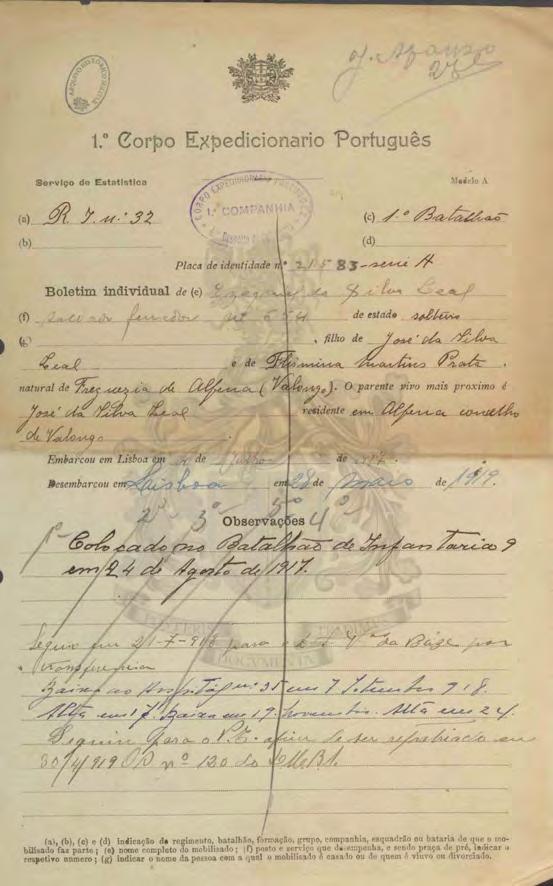 J. Afonso
ARQUIVO HISTÓRICO MILITAR
1.º Corpo Expedicionario Português
Serviço de Estatistica
Modelo A
(a) R I. n.º 32
CORPO EXPEDICIONARIO PORTUGUÊS
1.ª COMPANHIA
(c) 1.º Batalhão
(b)
(d)
Placa de identidade n.º 21583-serie A
Boletim individual de (e) da Silva Leal
(f) soldado n.º 654 de estado solteiro
(g) , filho de José da Silva
Leal e de Flismina Martins Prata ,
natural de Freguezia de Alfena (Valongo). O parente vivo mais proximo é
José da Silva Leal residente em Alfena concelho
de Valongo
Embarcou em Lisboa em de Julho de 1917.
Desembarcou em Lisboa em 28 de Maio de 1919.
2º 3º 5º 4º
Observações
1º Colocado no Batalhão de Infantaria 9
em 24 de Agosto de 1917.
Seguiu em 21-7-918 para o da Báze por
transferencia
Baixa ao Hospital n.º 35 em 7 Setembro 918.
Alta em 17. Baixa em 19 Novembro. Alta em 24.
Seguiu para o P.E. afim de ser repatriado em
30/4/919 OS nº 120 do
(a), (b), (c) e (d) indicação do regimento, batalhão, formação, grupo, companhia, esquadrão ou bataria de que o mo-
bilisado faz parte; (e) nome completo do mobilisado; (f) posto e serviço que desempenha, e sendo praça de pré, indicar o
respetivo numero; (g) indicar o nome da pessoa com a qual o mobilisado é casado ou de quem é viuvo ou divorciado.